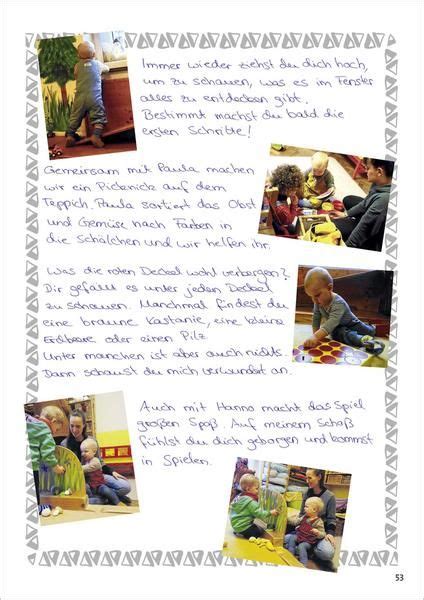 Immer wieder ziehst du dich hoch,
um zu schauen, was es im Fenster
alles zu entdecken gibt.
Bestimmt machst du bald die
ersten Schritte!
Gemeinsam mit Paula machen
wir ein Picknick auf dem
Teppich. Paula sortiert das Obst
und Gemüse nach Farben in
die Schälchen und wir helfen ihr.
Was die roten Deckel wohl verbergen?
Dir gefällt es unter jeden Deckel
zu schauen. Manchmal findest du
eine braune Kastanie, eine kleine
Erdbeere oder einen Pilz
Unter manchen ist aber auch nichts.
Dann schaust du mich verwundert an.
Auch mit Hanno macht das Spiel
großen Spaß. Auf meinem Schoß
fühlst du dich geborgen und kommst
in Spielen.
53